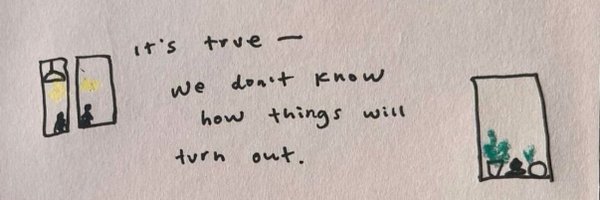 it's true —
we don't know
how things will
turn out.